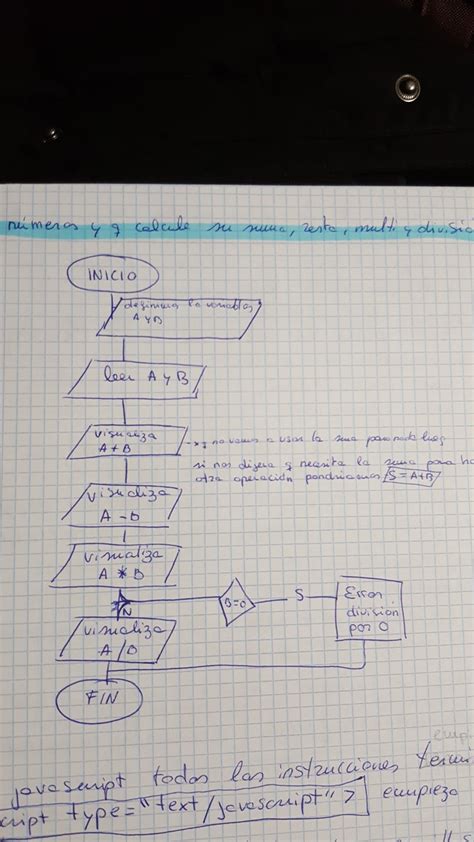 números y q calcule su suma, resta, multi y divisió
INICIO
definimos la variables
A y B
leer A y B
visualiza
A + B
→ xq no vamos a usar la suma para nada luego,
si nos dijera q necesita la suma para ha
otra operación pondríamos S = A+B
visualiza
A - B
visualiza
A * B
N
B=0
S
Error
división
por 0
visualiza
A / B
FIN
javascript todas las instrucciones termi
cript type="text/javascript"> empieza